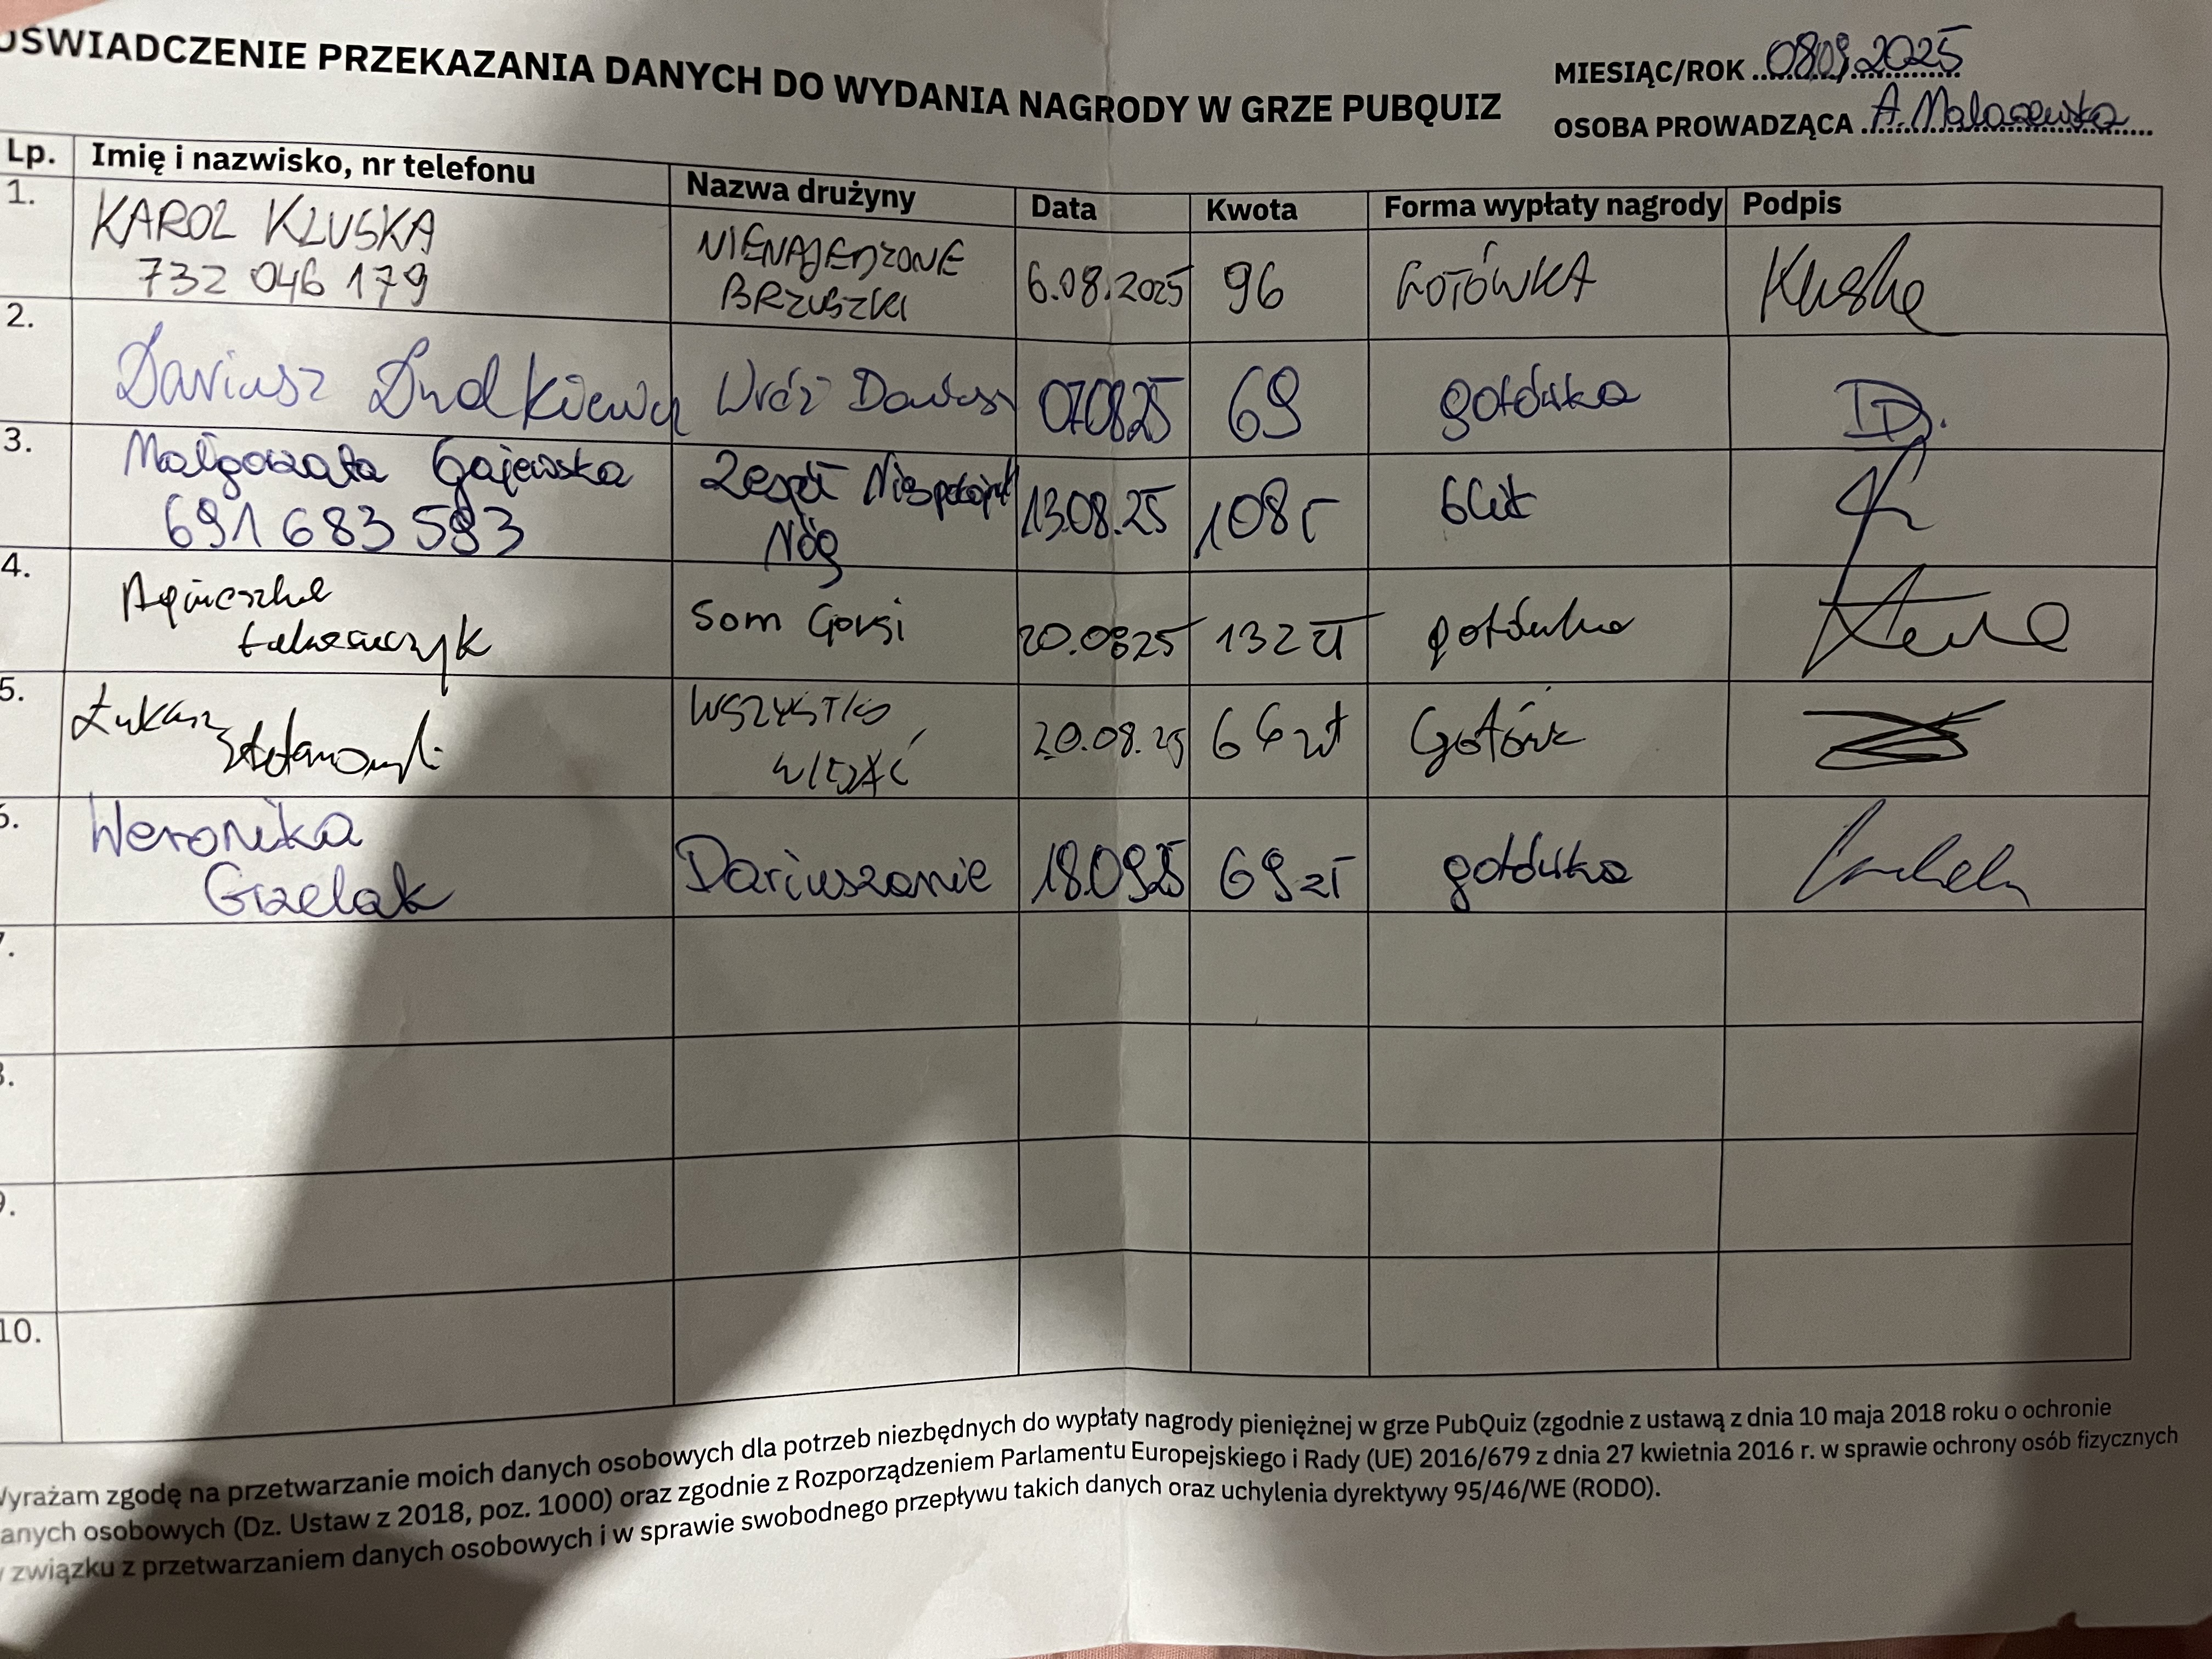 OŚWIADCZENIE PRZEKAZANIA DANYCH DO WYDANIA NAGRODY W GRZE PUBQUIZ
MIESIĄC/ROK 08/09/2025
OSOBA PROWADZĄCA A. Malaszewska
Lp. Imię i nazwisko, nr telefonu Nazwa drużyny Data Kwota Forma wypłaty nagrody Podpis
1. KAROL KLUSKA
732 046 179
NIENAJEDZONE
BRZUSZKI
6.08.2025 96 GOTÓWKA Kluska
2. Dariusz Dudkiewicz Wróż Dariusz 070825 69 gotówka DD.
3. Małgorzata Gajewska
691 683 593
Zespół Niespokojnych
Nóg
13.08.25 108
4. Agnieszka
Łukaszczyk
Som Gorsi 20.0825 132 zł gotówka
5. Łukasz
WSZYSTKO
WIDZĄC
20.08.25 66 zł Gotówk
6. Weronika
Grzelak
Dariuszanie 18.0925 69 zł gotówka
7.
8.
9.
10.
Wyrażam zgodę na przetwarzanie moich danych osobowych dla potrzeb niezbędnych do wypłaty nagrody pieniężnej w grze PubQuiz (zgodnie z ustawą z dnia 10 maja 2018 roku o ochronie
danych osobowych (Dz. Ustaw z 2018, poz. 1000) oraz zgodnie z Rozporządzeniem Parlamentu Europejskiego i Rady (UE) 2016/679 z dnia 27 kwietnia 2016 r. w sprawie ochrony osób fizycznych
w związku z przetwarzaniem danych osobowych i w sprawie swobodnego przepływu takich danych oraz uchylenia dyrektywy 95/46/WE (RODO).